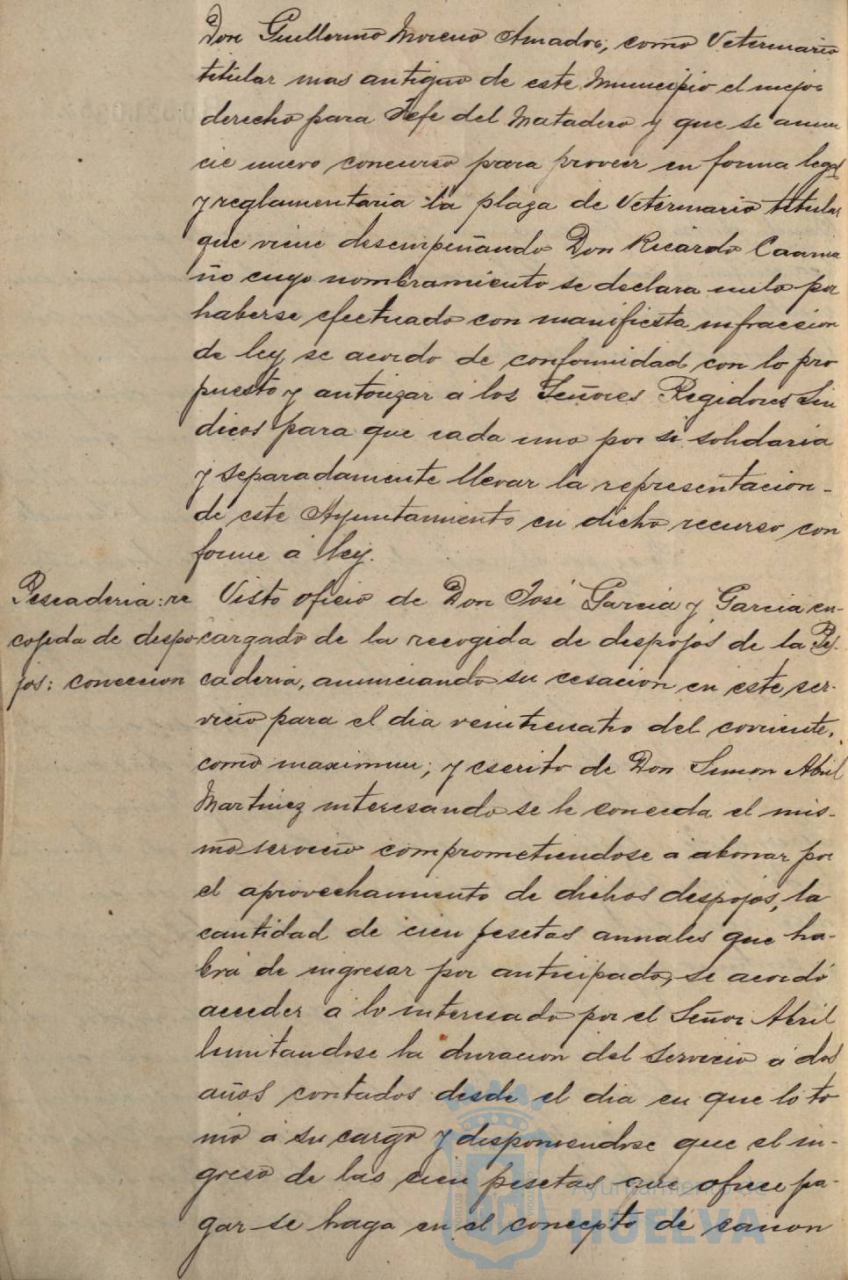 Don Guillermo Moreno Amador, como Veterinario
titular mas antiguo de este Municipio el mejor
derecho para Jefe del Matadero y que se anun
cie nuevo concurso para proveer en forma legal
y reglamentaria la plaza de Veterinario titular
que viene desempeñando Don Ricardo Caama
ño cuyo nombramiento se declara nulo por
haberse efectuado con manifiesta infraccion
de ley, se acordo de conformidad con lo pro
puesto y autorizar a los Señores Regidores Sin
dicos para que cada uno por si solidaria
y separadamente llevar la representacion-
de este Ayuntamiento en dicho recurso con
forme a ley.
Pescaderia: re
cojida de despo
jos: concecion
Visto oficio de Don José Garcia y Garcia en-
cargado de la recogida de despojos de la Pes
caderia, anunciando su cesacion en este ser-
vicio para el dia veinticuatro del corriente,
como maximun; y escrito de Don Simon Abril
Martinez interesando se le conceda el mis-
mo servicio comprometiendose a abonar por
el aprovechamiento de dichos despojos, la
cantidad de cien pesetas annales que ha-
brá de ingresar por anticipado, se acordó
acceder a lo interesado por el Señor Abril
limitandose la duracion del servicio a dos
años contados desde el dia en que lo to
mó a su cargo y disponiendose que el in-
greso de las cien pesetas que ofrece pa-
gar se haga en el concepto de canon
Ayuntamiento de
HUELVA